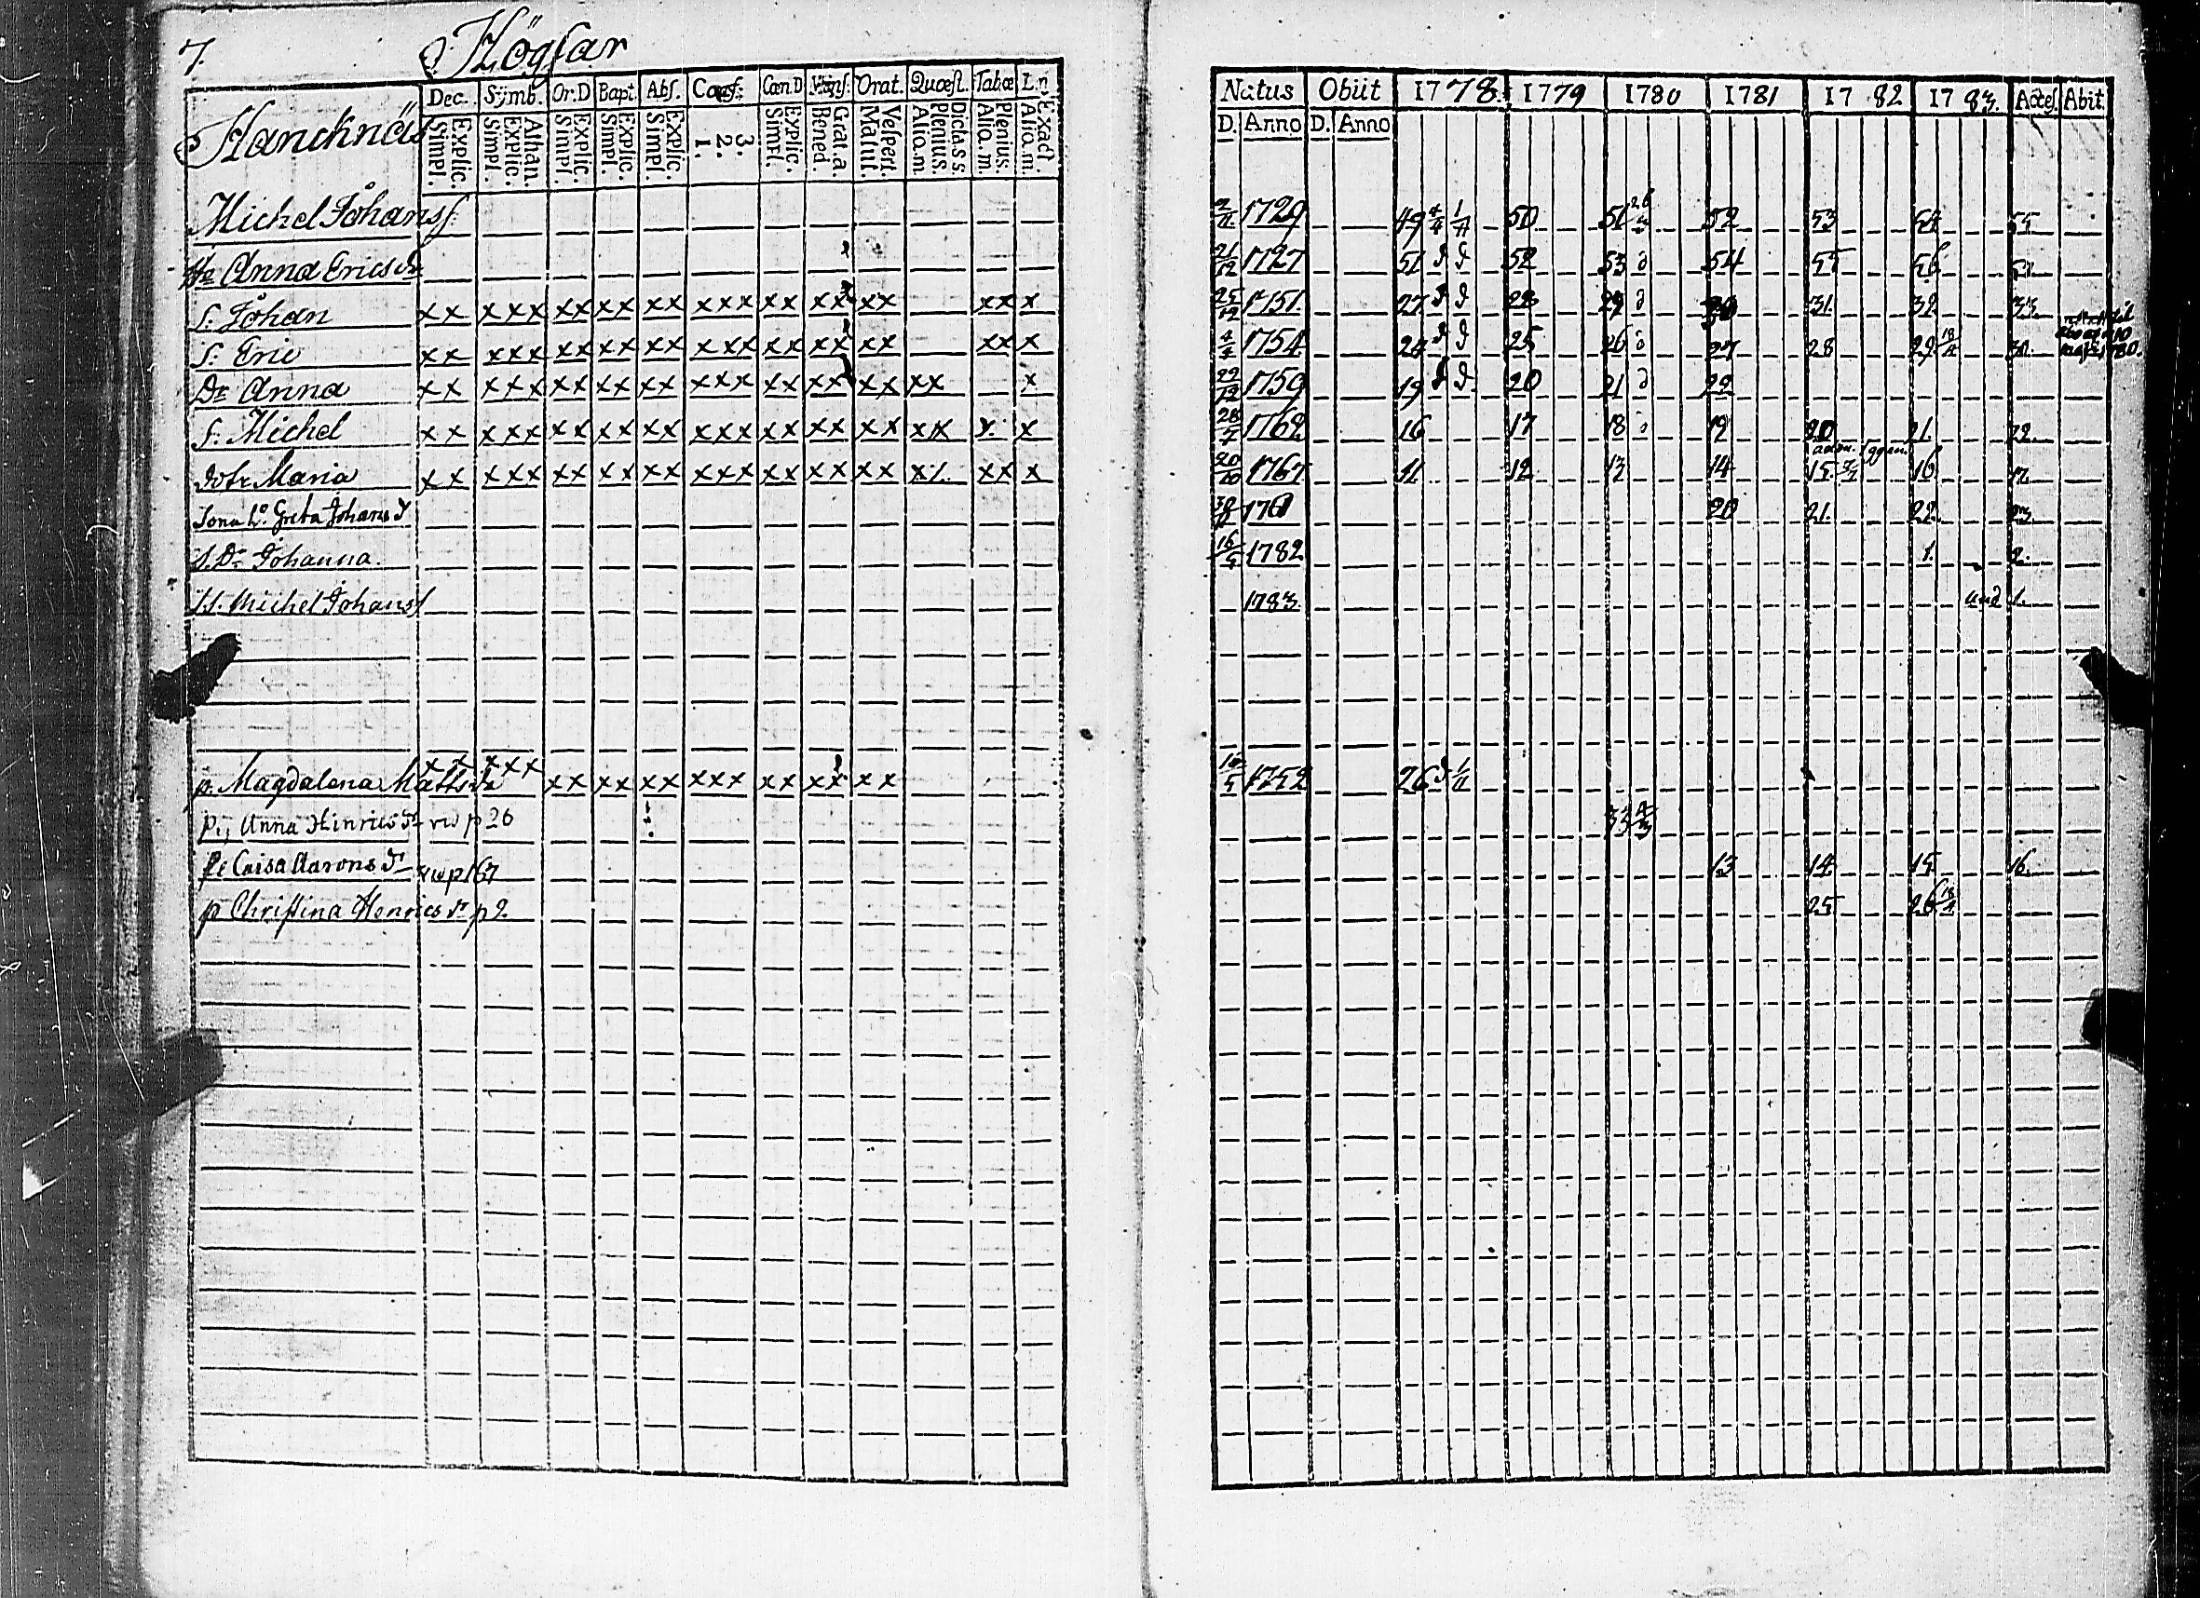 7. Högsar
Dec. Sÿmb. Or.D Bapt. Abs. Conf. Cœn.D Orat. Quæst. Tabæ
Explic. Simpl. Athan. Explic. Simpl. Explic. Simpl. Explic. Simpl. Explic. Simpl. 3. 2. 1. Explic. Simpl. Grat.a. Bened. Vespert. Matut. Dicta S S. Plenius. Aliq.m. Plenius. Aliq.m. Exact. Aliq.m.
Hancknäs
Michel Johanss.
Anna Ericsdr
S. Johan xx xxx xx xx xx xxx xx xx xx xx x
S. Eric xx xxx xx xx xx xxx xx xx xx xx x
Dr Anna xx xxx xx xx xx xxx xx xx xx xx x
S. Michel xx xxx xx xx xx xxx xx xx xx xx x. x
dotr Maria xx xxx xx xx xx xxx xx xx xx xx x
Greta Johans d
S. Dr Johanna.
Michel Johanss
p. Magdalena Matts dr xx xxx xx xx xx xxx xx xx xx
Anna Hinrics dr p 26
Caisa Aarons dr p 167
p Christina Henrics dr p 2.
Natus Obiit 1778. 1779 1780 1781 1782 1783. Acces. Abit.
D. Anno D. Anno
1729 49 50 51 52 53 54 55
21/12 1727 51 d d 52 53 d 54 55 56 57
25/12 1751. 27 d d 28 29 d 30 31. 32. 33.
4/4 1754 24 d d 25 26 27 28 29 30.
22/12 1759 19 d d. 20 21 d 22
1762 16 17 18 19 20 21. 22.
1767 11 12 13 14 15 16 17.
1761 20 21. 22 23.
16/9 1782 1. 2.
1783. 1.
1752 26 d
33
13 14 15 16.
25 26